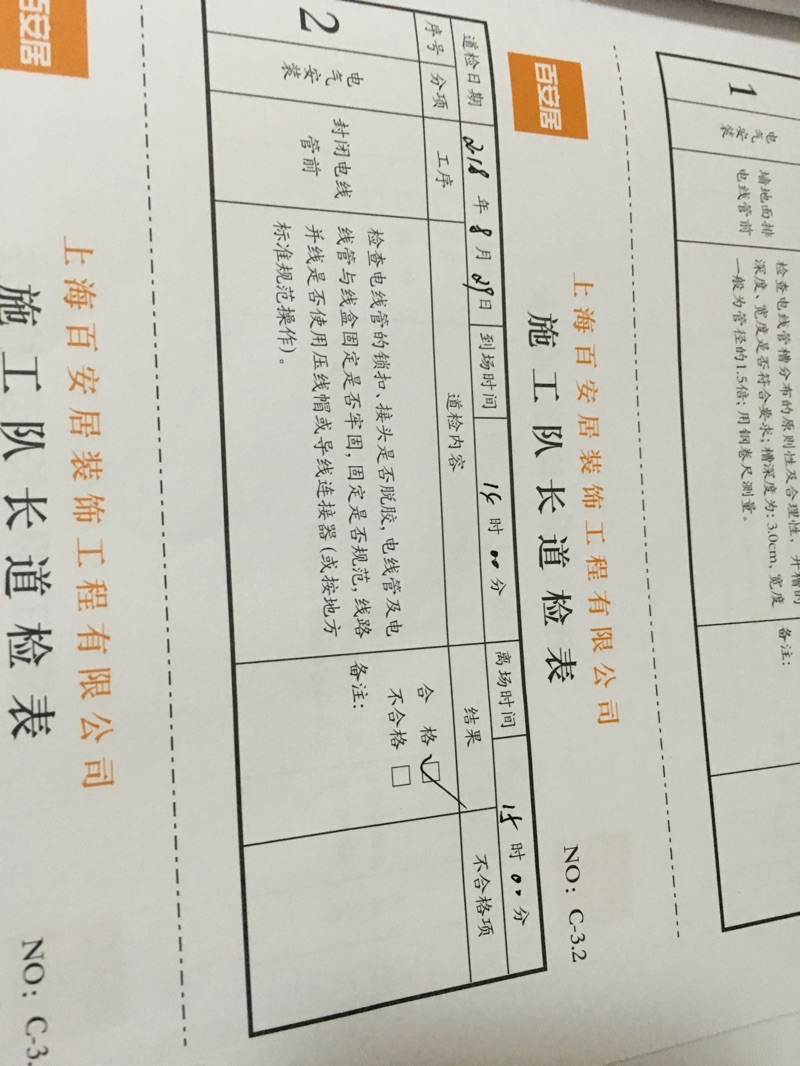 1
电气安装
墙地面排
电线管前
检查电线管槽分布的原则性及合理性，开槽的
深度、宽度是否符合要求；槽深度为：3.0cm，宽度
一般为管径的1.5倍；用钢卷尺测量。
备注：
百安居
上海百安居装饰工程有限公司
施工队长道检表
NO：C-3.2
道检日期 2018 年 8 月 29 日 到场时间 14 时 00 分 离场时间 15 时 00 分
序号 分项 工序 道检内容 结果 不合格项
2
电气安装
封闭电线
管前
检查电线管的锁扣、接头是否脱胶，电线管及电
线管与线盒固定是否牢固，固定是否规范，线路
并线是否使用压线帽或导线连接器（或按地方
标准规范操作）。
合 格
不合格
备注：
百安居
上海百安居装饰工程有限公司
施工队长道检表
NO：C-3.